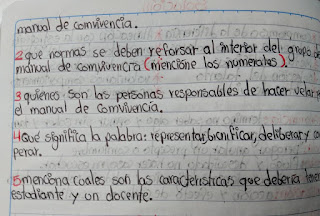 manual de comvivencia.
2 que normas se deben reforsar al interior del grupo
manual de comvivencia (mencione los numerales)
3 quienes son las personas responsables de hacer
el manual de comvivencia.
4 Qué significa la palabra: representar, branificar, deliberar y
perar.
5 menciona cuales son las caracteristicas que deberia
estudiante y un docente.